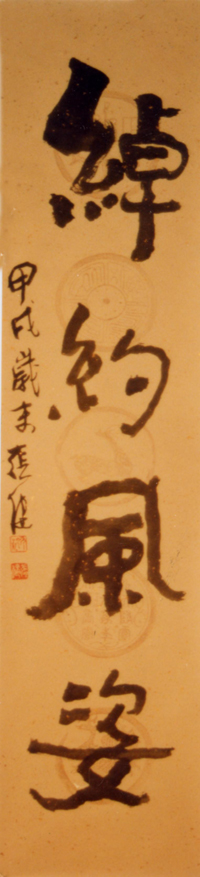 綽約風姿
甲戌歲末張健